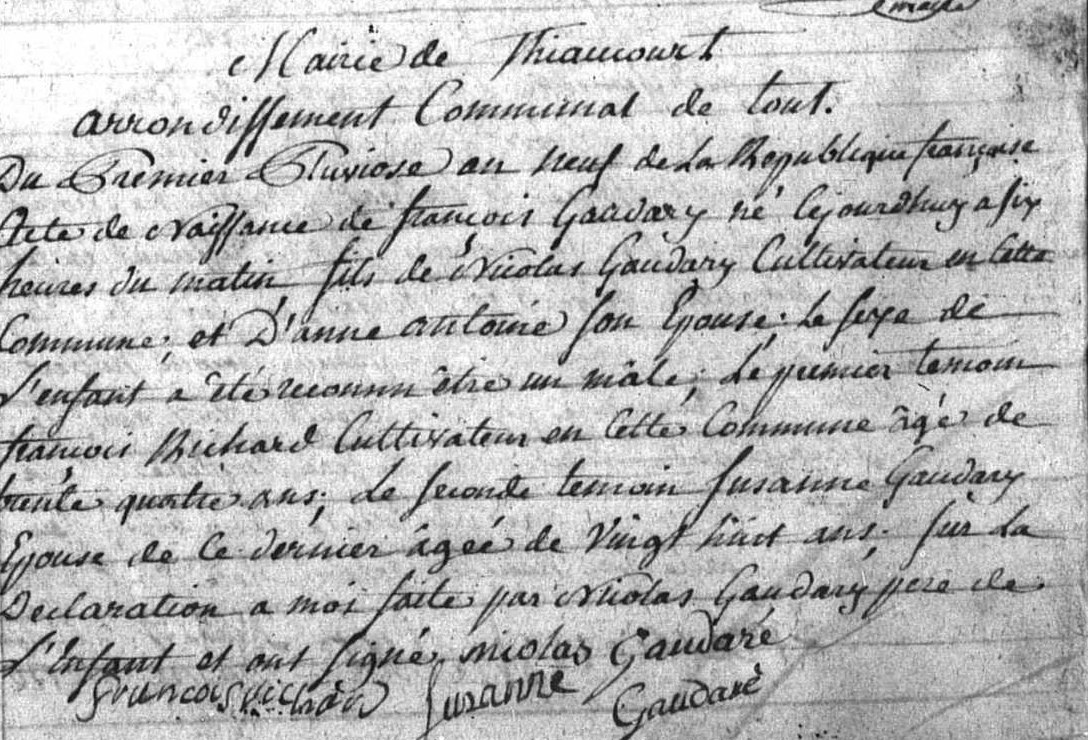 maire
Mairie de Thiaucourt
arrondissement Communal de toul.
Du Premier Pluviose an neuf de La Republique française
Acte de Naissance de françois Gaudary né cejourdhuy a six
heures du matin fils de Nicolas Gaudary Cultivateur en Cette
Commune, et D'anne antoine son Epouse. Le sexe de
L'enfant a êté reconnu être un mâle; Le premier temoin
françois Richard Cultivateur en Cette Commune âgé de
trente quatre ans; Le seconde temoin Susanne Gaudary
Epouse de Ce dernier âgée de Vingt huit ans; sur La
Declaration a moi faite par Nicolas Gaudary pere de
L'Enfant et ont signé, nicolas Gaudaré
francois richar Susanne Gaudaré